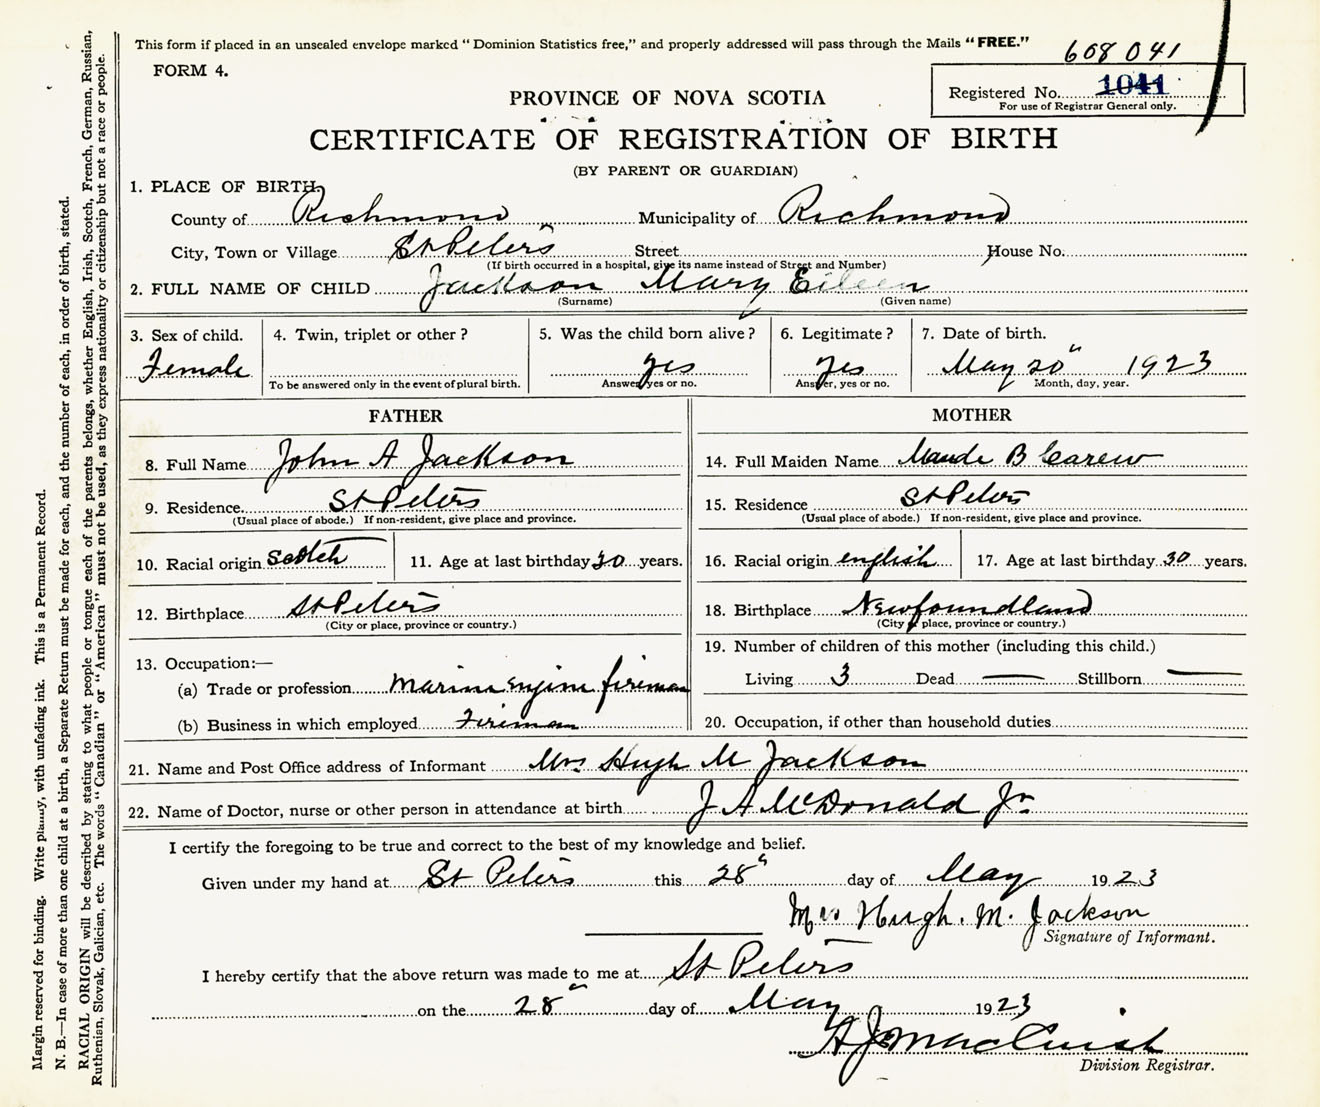 This form if placed in an unsealed envelope marked "Dominion Statistics free," and properly addressed will pass through the Mails "FREE."
608 041
FORM 4.
Registered No. 1041
For use of Registrar General only.
PROVINCE OF NOVA SCOTIA
CERTIFICATE OF REGISTRATION OF BIRTH
(BY PARENT OR GUARDIAN)
1. PLACE OF BIRTH
County of Richmond Municipality of Richmond
City, Town or Village St Peters Street House No.
(If birth occurred in a hospital, give its name instead of Street and Number)
2. FULL NAME OF CHILD Jackson Mary Eileen
(Surname) (Given name)
3. Sex of child. 4. Twin, triplet or other? 5. Was the child born alive? 6. Legitimate? 7. Date of birth.
Female yes Yes May 20" 1923
To be answered only in the event of plural birth. Answer, yes or no. Answer, yes or no. Month, day, year.
FATHER MOTHER
8. Full Name John A Jackson
14. Full Maiden Name Maude B Carew
9. Residence. St Peters
(Usual place of abode.) If non-resident, give place and province.
15. Residence St Peters
(Usual place of abode.) If non-resident, give place and province.
10. Racial origin Scotch 11. Age at last birthday 30 years.
16. Racial origin english 17. Age at last birthday 30 years.
12. Birthplace St Peters
(City or place, province or country.)
18. Birthplace Newfoundland
(City or place, province or country.)
13. Occupation:—
(a) Trade or profession Marine engine fireman
(b) Business in which employed Fireman
19. Number of children of this mother (including this child.)
Living 3 Dead — Stillborn —
20. Occupation, if other than household duties
21. Name and Post Office address of Informant Mrs Hugh M Jackson
22. Name of Doctor, nurse or other person in attendance at birth J A McDonald Jr
I certify the foregoing to be true and correct to the best of my knowledge and belief.
Given under my hand at St Peters this 28" day of May 1923
Mrs Hugh. M. Jackson
Signature of Informant.
I hereby certify that the above return was made to me at St Peters
on the 28" day of May 1923
Division Registrar.
Margin reserved for binding. Write plainly, with unfading ink. This is a Permanent Record.
N. B.—In case of more than one child at a birth, a Separate Return must be made for each, and the number of each, in order of birth, stated.
RACIAL ORIGIN will be described by stating to what people or tongue each of the parents belongs, whether English, Irish, Scotch, French, German, Russian,
Ruthenian, Slovak, Galician, etc. The words "Canadian" or "American" must not be used, as they express nationality or citizenship but not a race or people.